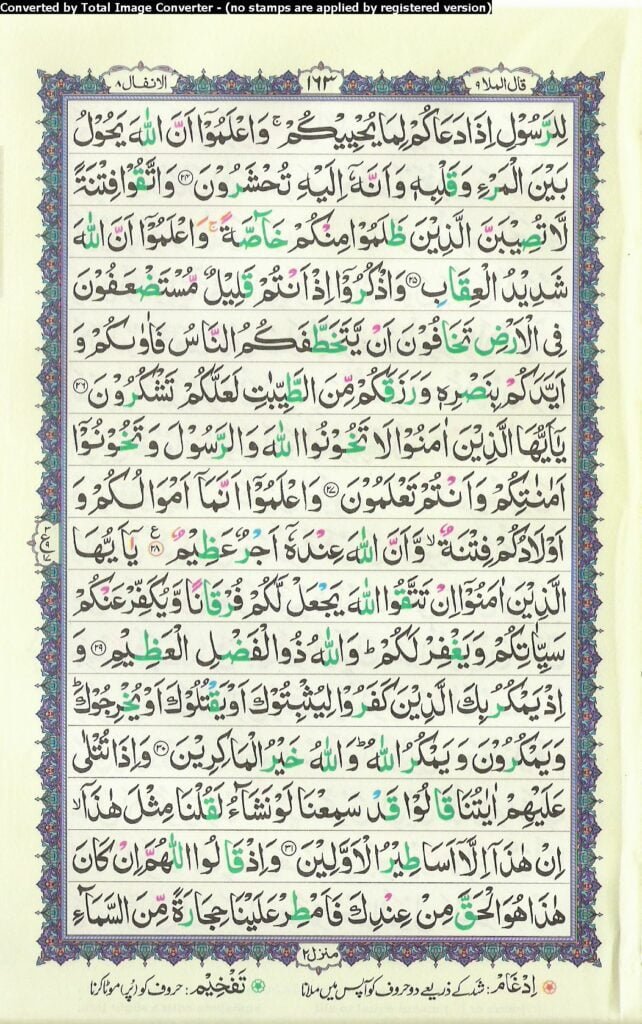 Converted by Total Image Converter - (no stamps are applied by registered version)
قال الملا ٩
١٦٣
الانفال ٨
لِلرَّسُوۡلِ اِذَا دَعَاكُمۡ لِمَا يُحۡيِيۡكُمۡ ۚ وَاعۡلَمُوۡۤا اَنَّ اللّٰهَ يَحُوۡلُ
بَيۡنَ الۡمَرۡءِ وَقَلۡبِهٖ وَاَنَّهٗۤ اِلَيۡهِ تُحۡشَرُوۡنَ ﴿۲۴﴾ وَاتَّقُوۡا فِتۡنَةً
لَّا تُصِيۡبَنَّ الَّذِيۡنَ ظَلَمُوۡا مِنۡكُمۡ خَآصَّةً ۚ وَاعۡلَمُوۡۤا اَنَّ اللّٰهَ
شَدِيۡدُ الۡعِقَابِ ﴿۲۵﴾ وَاذۡكُرُوۡۤا اِذۡ اَنۡتُمۡ قَلِيۡلٌ مُّسۡتَضۡعَفُوۡنَ
فِى الۡاَرۡضِ تَخَافُوۡنَ اَنۡ يَّتَخَطَّفَكُمُ النَّاسُ فَاٰوٰٮكُمۡ وَ
اَيَّدَكُمۡ بِنَصۡرِهٖ وَرَزَقَكُمۡ مِّنَ الطَّيِّبٰتِ لَعَلَّكُمۡ تَشۡكُرُوۡنَ ﴿۲۶﴾
يٰۤاَيُّهَا الَّذِيۡنَ اٰمَنُوۡا لَا تَخُوۡنُوا اللّٰهَ وَالرَّسُوۡلَ وَتَخُوۡنُوۡۤا
اَمٰنٰتِكُمۡ وَاَنۡتُمۡ تَعۡلَمُوۡنَ ﴿۲۷﴾ وَاعۡلَمُوۡۤا اَنَّمَاۤ اَمۡوَالُكُمۡ وَ
اَوۡلَادُكُمۡ فِتۡنَةٌ ۙ وَّاَنَّ اللّٰهَ عِنۡدَهٗۤ اَجۡرٌ عَظِيۡمٌ ﴿۲۸﴾ ع يٰۤاَيُّهَا
الَّذِيۡنَ اٰمَنُوۡۤا اِنۡ تَتَّقُوا اللّٰهَ يَجۡعَلۡ لَّكُمۡ فُرۡقَانًا وَّيُكَفِّرۡ عَنۡكُمۡ
سَيِّاٰتِكُمۡ وَيَغۡفِرۡ لَكُمۡ ؕ وَاللّٰهُ ذُو الۡفَضۡلِ الۡعَظِيۡمِ ﴿۲۹﴾ وَ
اِذۡ يَمۡكُرُ بِكَ الَّذِيۡنَ كَفَرُوۡا لِيُثۡبِتُوۡكَ اَوۡ يَقۡتُلُوۡكَ اَوۡ يُخۡرِجُوۡكَ ؕ
وَيَمۡكُرُوۡنَ وَيَمۡكُرُ اللّٰهُ ؕ وَاللّٰهُ خَيۡرُ الۡمَاكِرِيۡنَ ﴿۳۰﴾ وَاِذَا تُتۡلٰى
عَلَيۡهِمۡ اٰيٰتُنَا قَالُوۡا قَدۡ سَمِعۡنَا لَوۡ نَشَآءُ لَقُلۡنَا مِثۡلَ هٰذَاۤ ۙ
اِنۡ هٰذَاۤ اِلَّاۤ اَسَاطِيۡرُ الۡاَوَّلِيۡنَ ﴿۳۱﴾ وَاِذۡ قَالُوا اللّٰهُمَّ اِنۡ كَانَ
هٰذَا هُوَ الۡحَـقَّ مِنۡ عِنۡدِكَ فَاَمۡطِرۡ عَلَيۡنَا حِجَارَةً مِّنَ السَّمَآءِ
منزل ٢
اِدْغَام: شد کے ذریعے دو حروف کو آپس میں ملانا تَفْخِیْم: حروف کو (پُر) موٹا کرنا